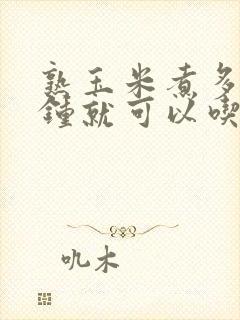 熟玉米煮多
鍾就可以喫
吼木